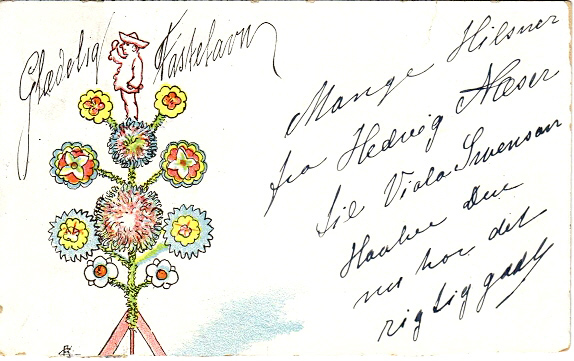 Glædelig Fastelavn
Mange Hilsner
fra Hedevig Næser
til Viola Svensson
Haaber Du
nu har det
rigtig godt